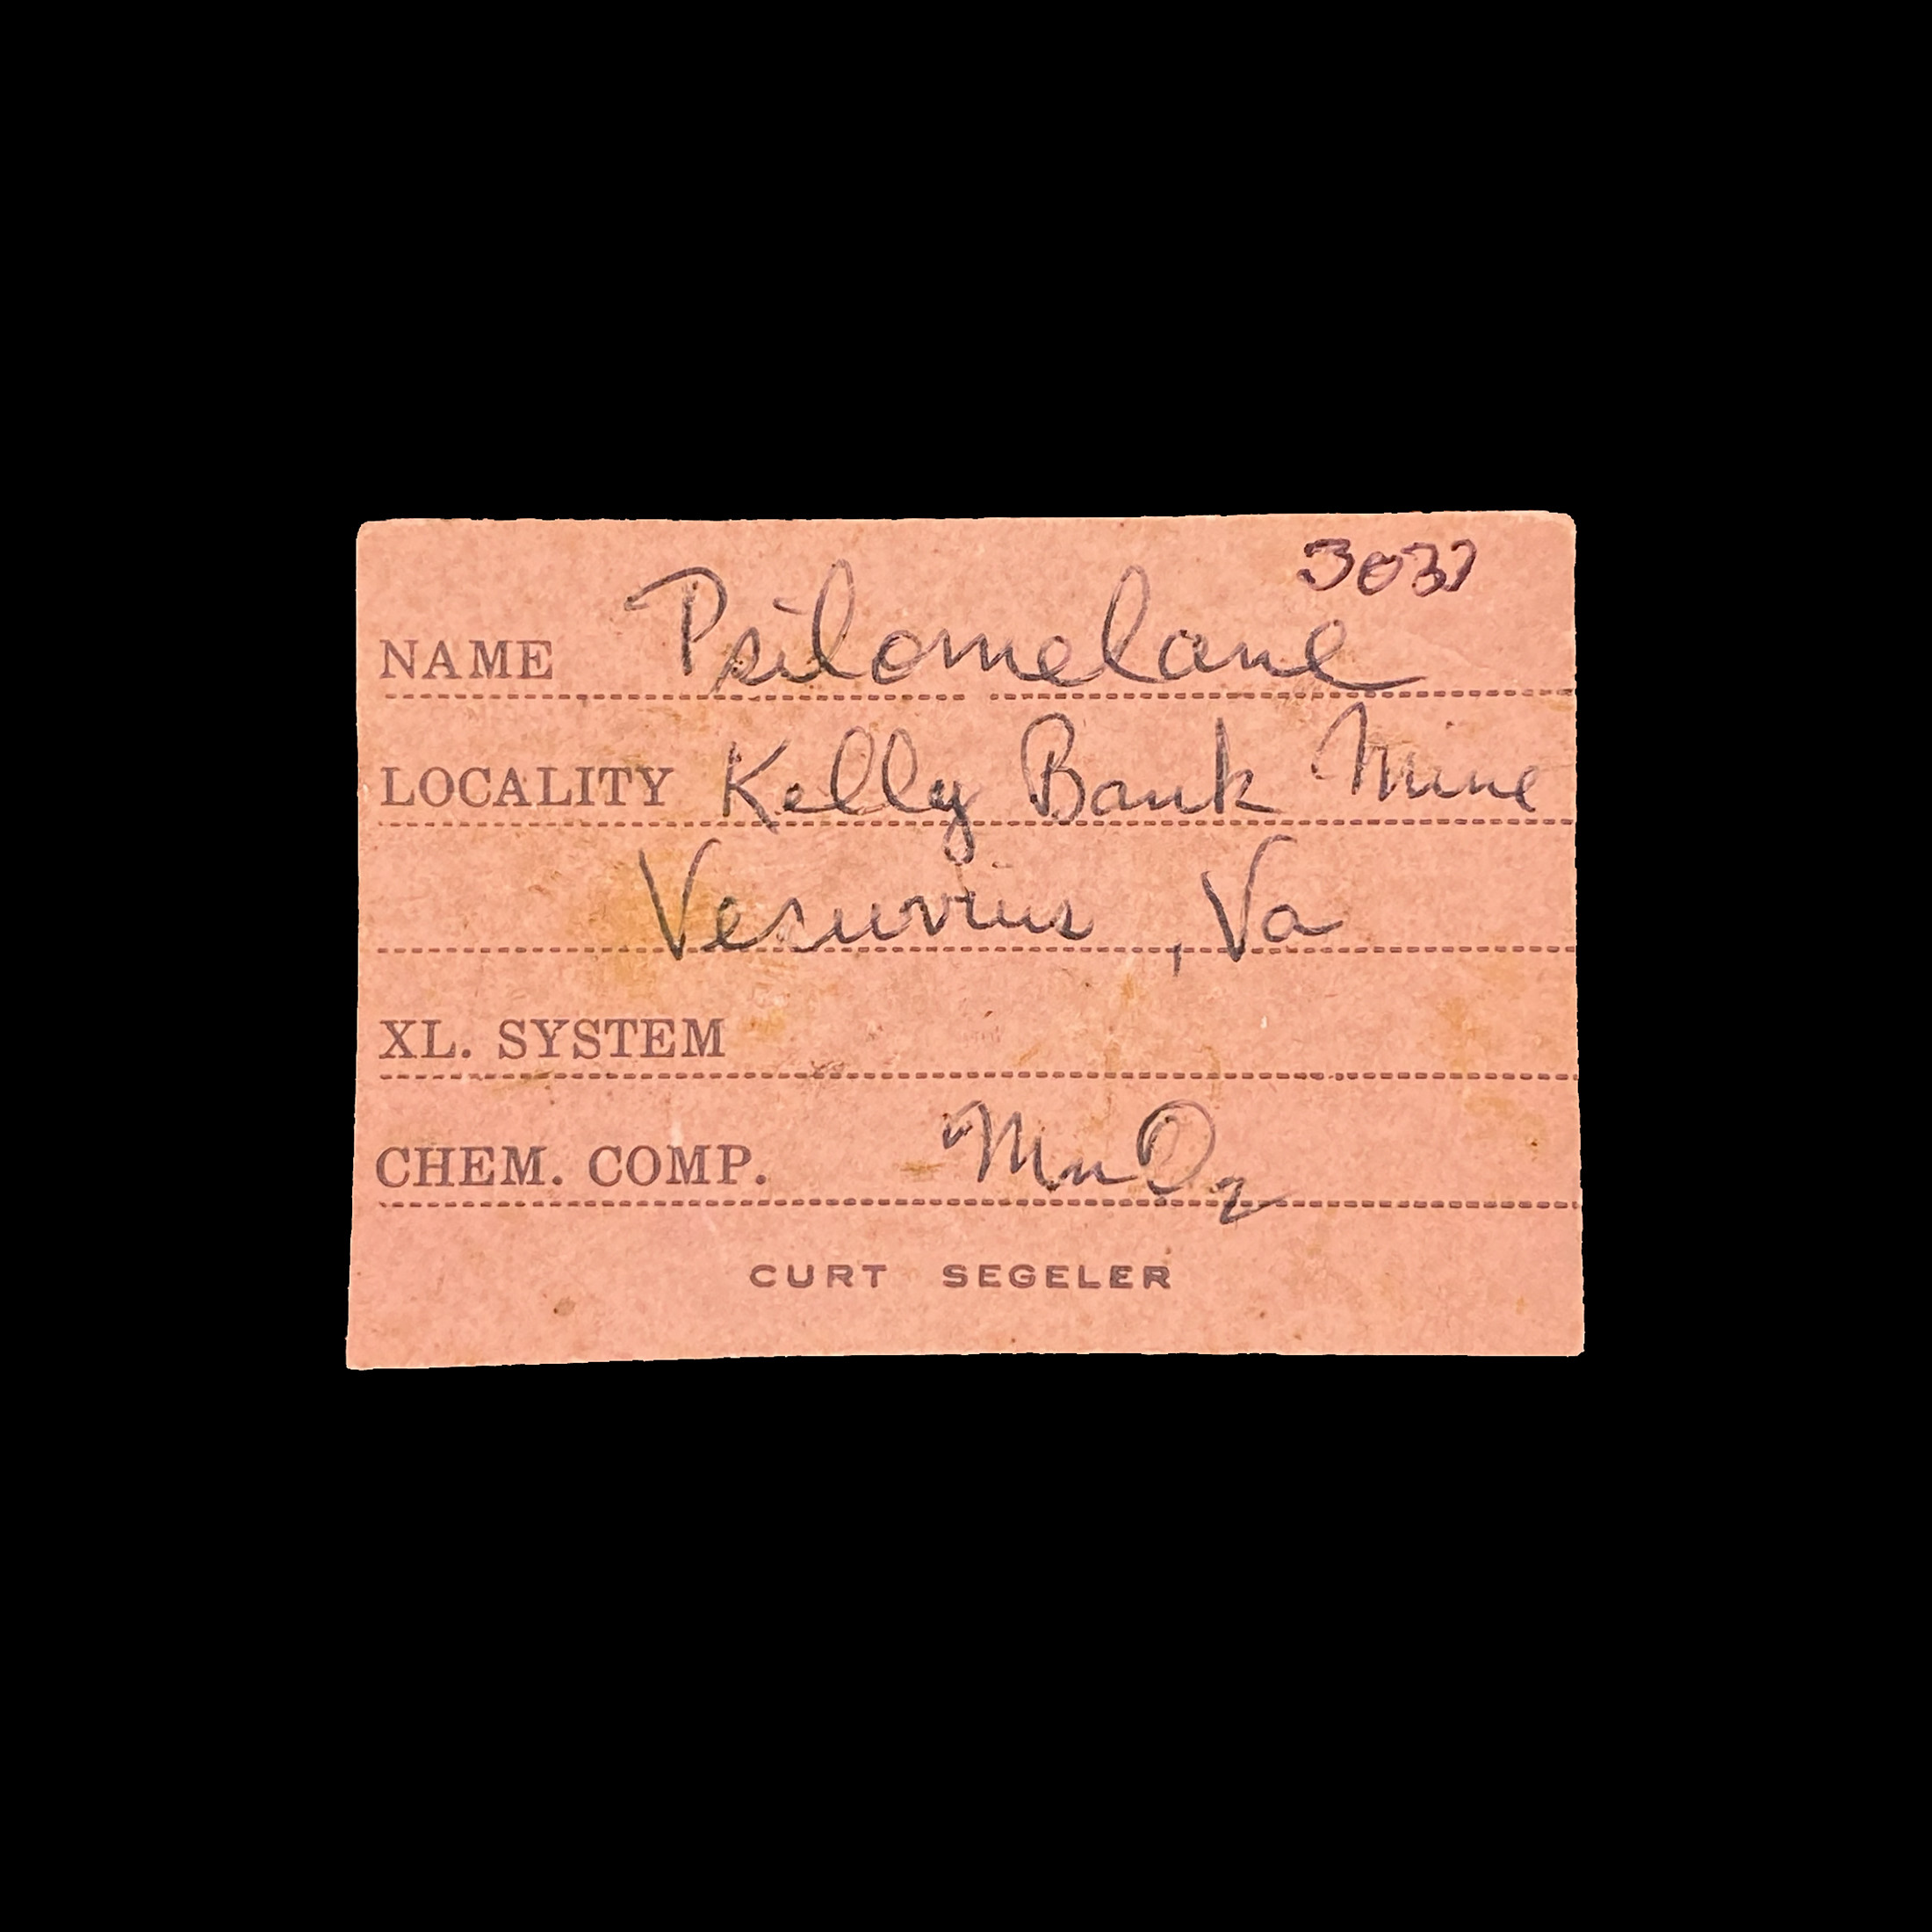 3037
NAME Psilomelane
LOCALITY Kelly Bank Mine
Vesuvius, Va
XL. SYSTEM
CHEM. COMP. MnO2
CURT SEGELER